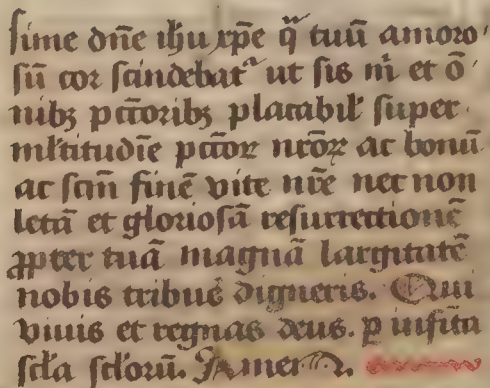 sime dn̄e ih̄u xp̄e q̄ tuū amoro
sū cor scindebatᷣ ut sis m̄ et ō
nibꝫ pctōribꝫ placabil̄ super
ml̄titudīe pctōꝝ nr̄oꝝ ac bonū
ac scm̄ finē vite nr̄e nec non
letā et gloriosā resurrectionē
ꝓpter tuā magnā largitatē
nobis tribue᷑ digneris. Qui
viuis et regnas deus. ꝑ infīta
scl̄a scl̄orū. Amen.